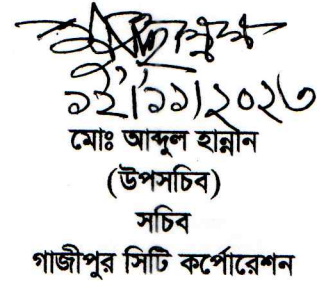 ১২/১১/২০২৩
মোঃ আব্দুল হান্নান
(উপসচিব)
সচিব
গাজীপুর সিটি কর্পোরেশন